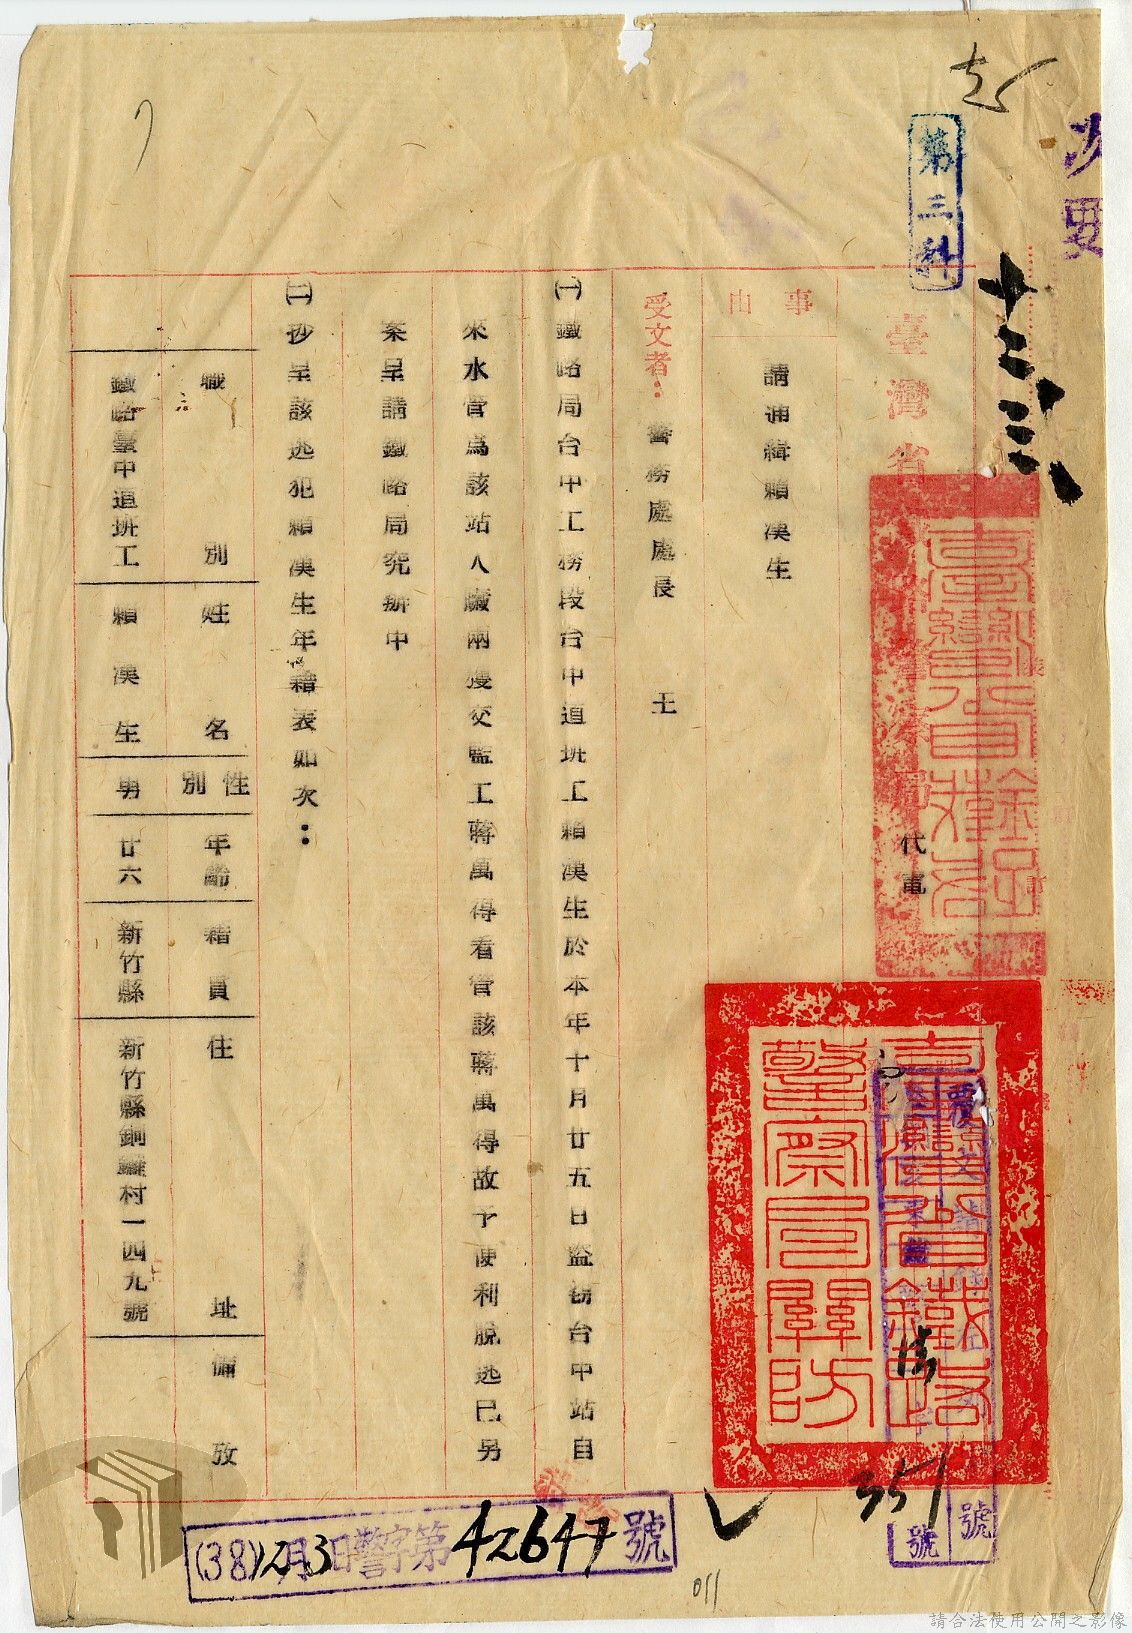 次要
第三科
十二三
臺灣省
代電
事由
請通緝賴漢生
受文者：警務處處長　王
㈠鐵路局台中工務段台中道班工賴漢生於本年十月廿五日盜竊台中站自
來水管為該站人贓兩獲交監工蔣萬得看管該蔣萬得故予便利脫逃已另
案呈請鐵路局究辦中
㈡抄呈該逃犯賴漢生年籍表如次：
職別　姓名　性別　年齡　籍貫　住址　備攷
鐵路臺中道班工　賴漢生　男　廿六　新竹縣　新竹縣銅鑼村一四九號
臺灣省鐵路
警察局關防
351
號
號
(38)12月3日警字第42647號
011
請合法使用公開之影像